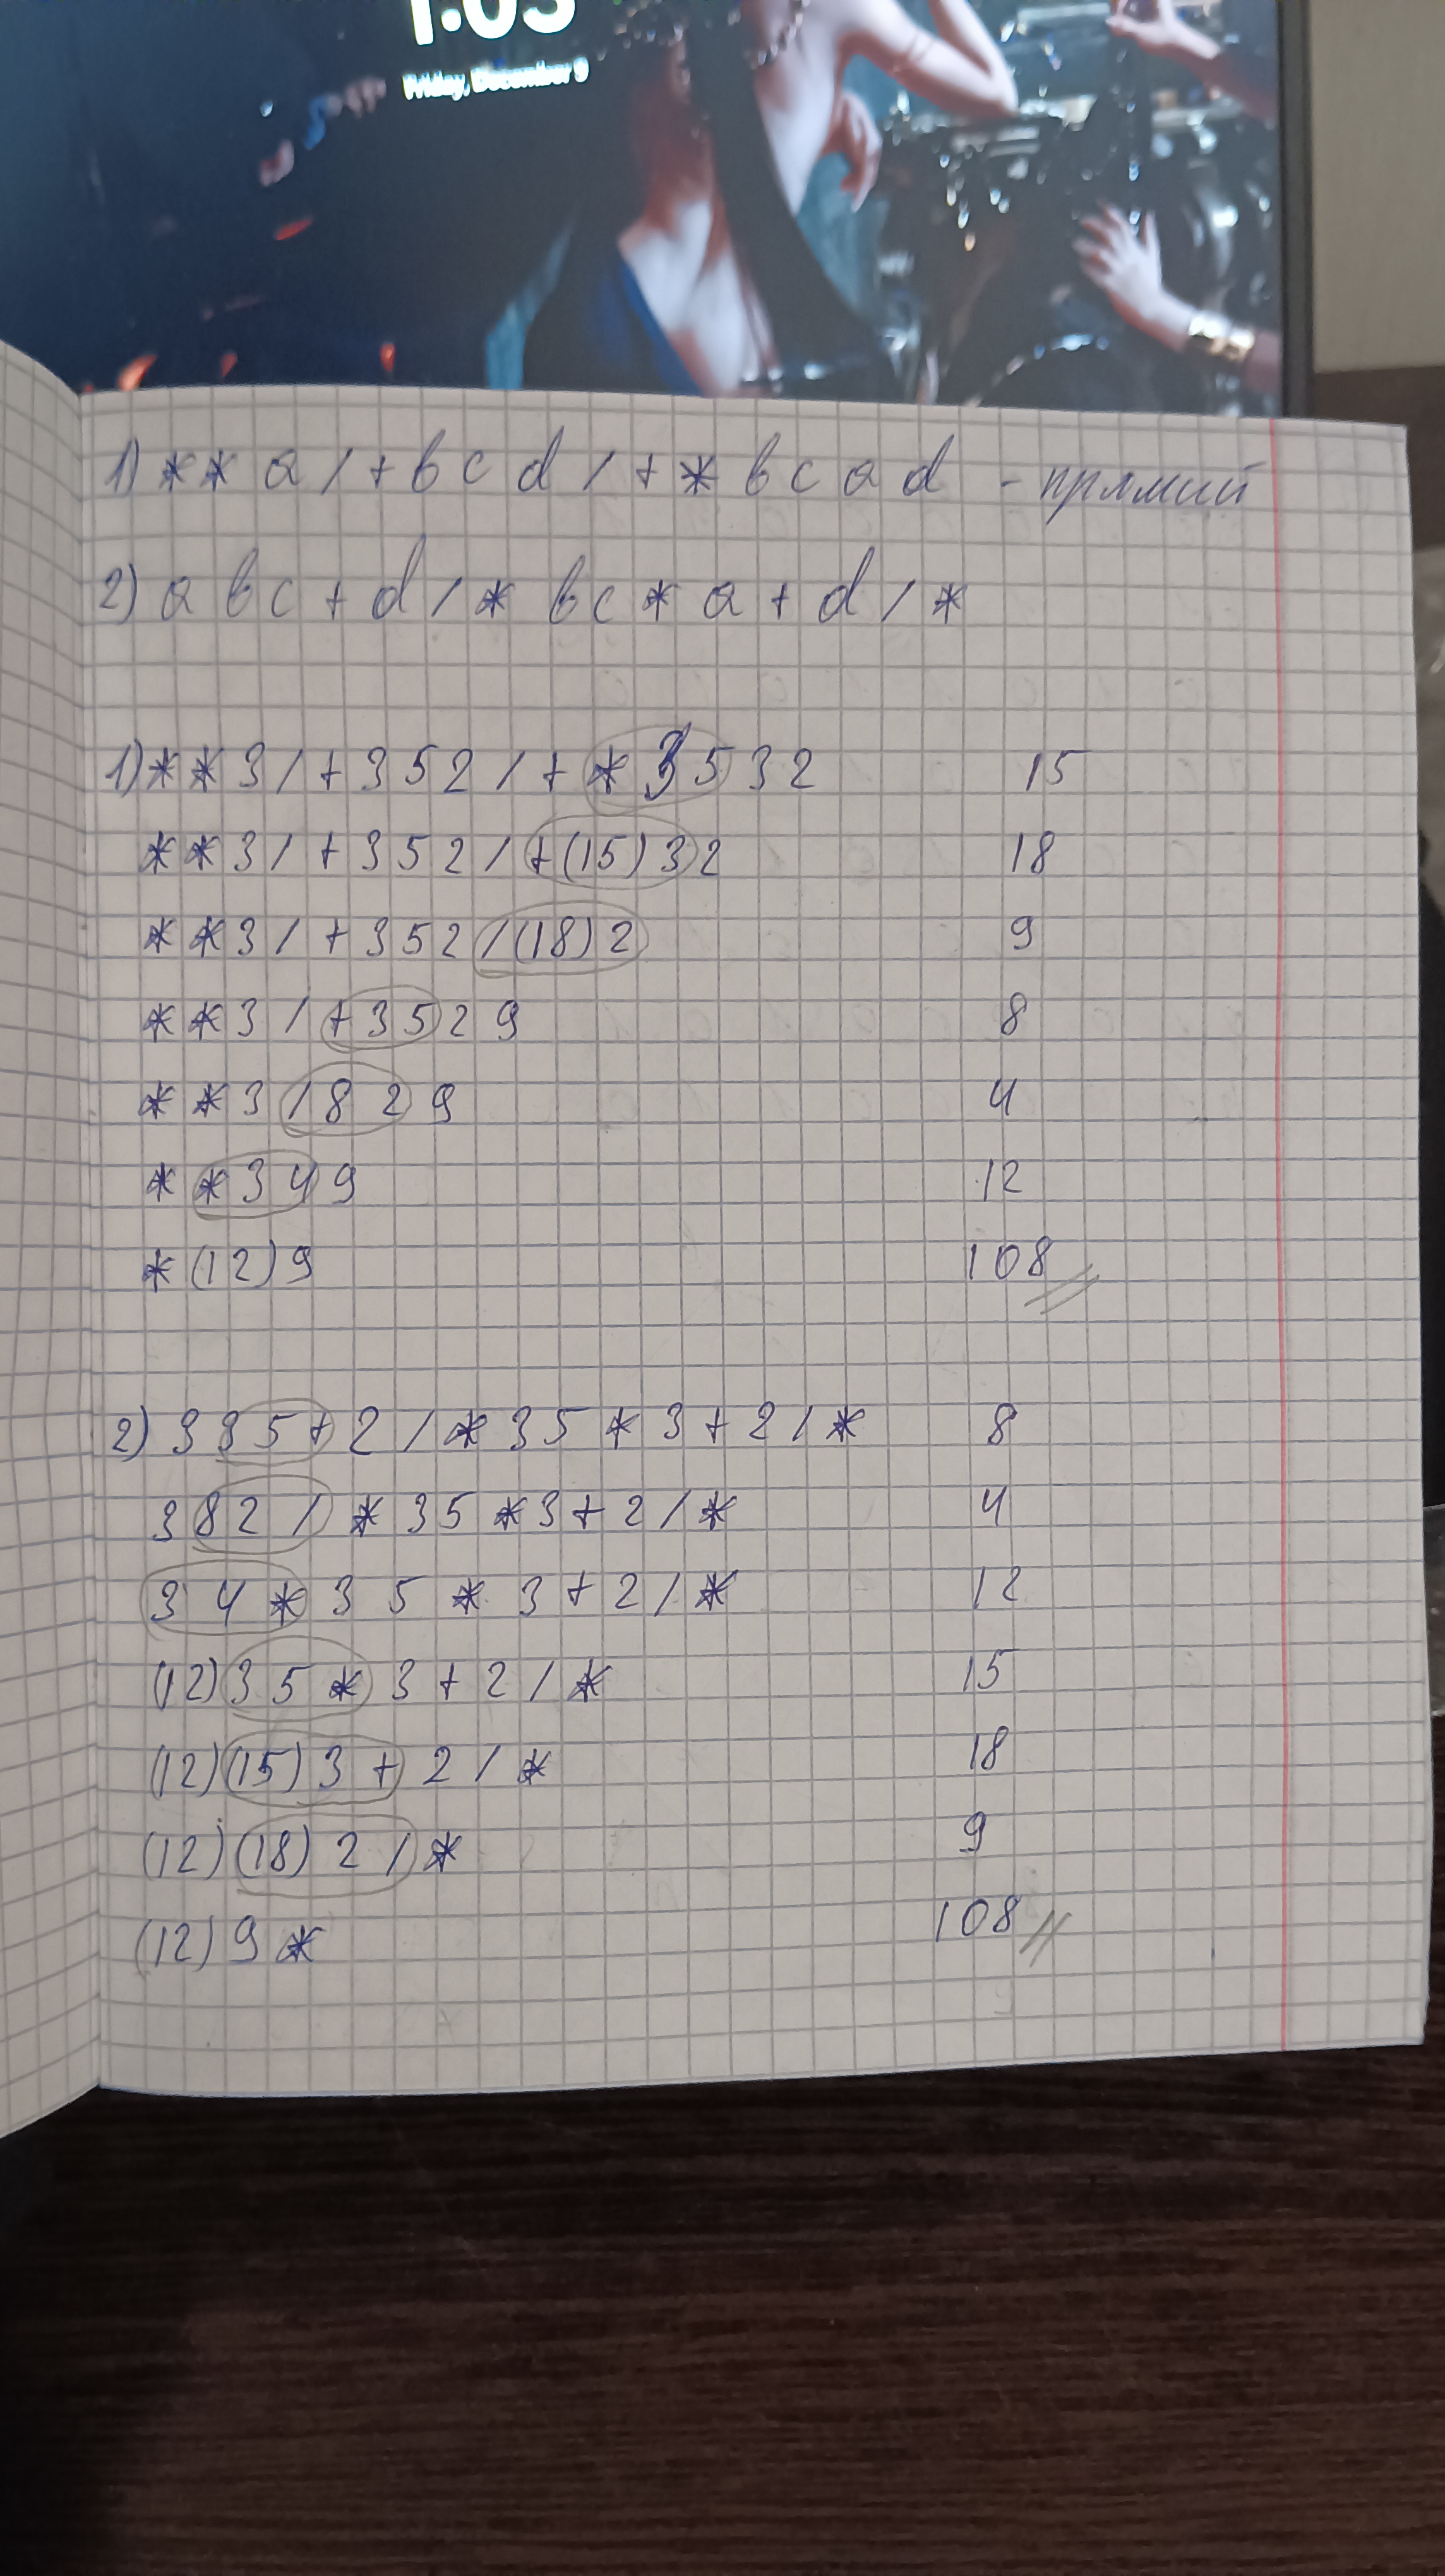 1:03
Friday, December 9
1) * * a / + b c d / + * b c a d - прямий
2) a b c + d / * b c * a + d / *
1) * * 3 / + 3 5 2 / + * 3 5 3 2 15
* * 3 / + 3 5 2 / + (15) 3 2 18
* * 3 / + 3 5 2 / (18) 2 9
* * 3 / + 3 5 2 9 8
* * 3 / 8 2 9 4
* * 3 4 9 12
* (12) 9 108
2) 3 3 5 + 2 / * 3 5 * 3 + 2 / * 8
3 8 2 / * 3 5 * 3 + 2 / * 4
3 4 * 3 5 * 3 + 2 / * 12
(12) 3 5 * 3 + 2 / * 15
(12) (15) 3 + 2 / * 18
(12) (18) 2 / * 9
(12) 9 * 108